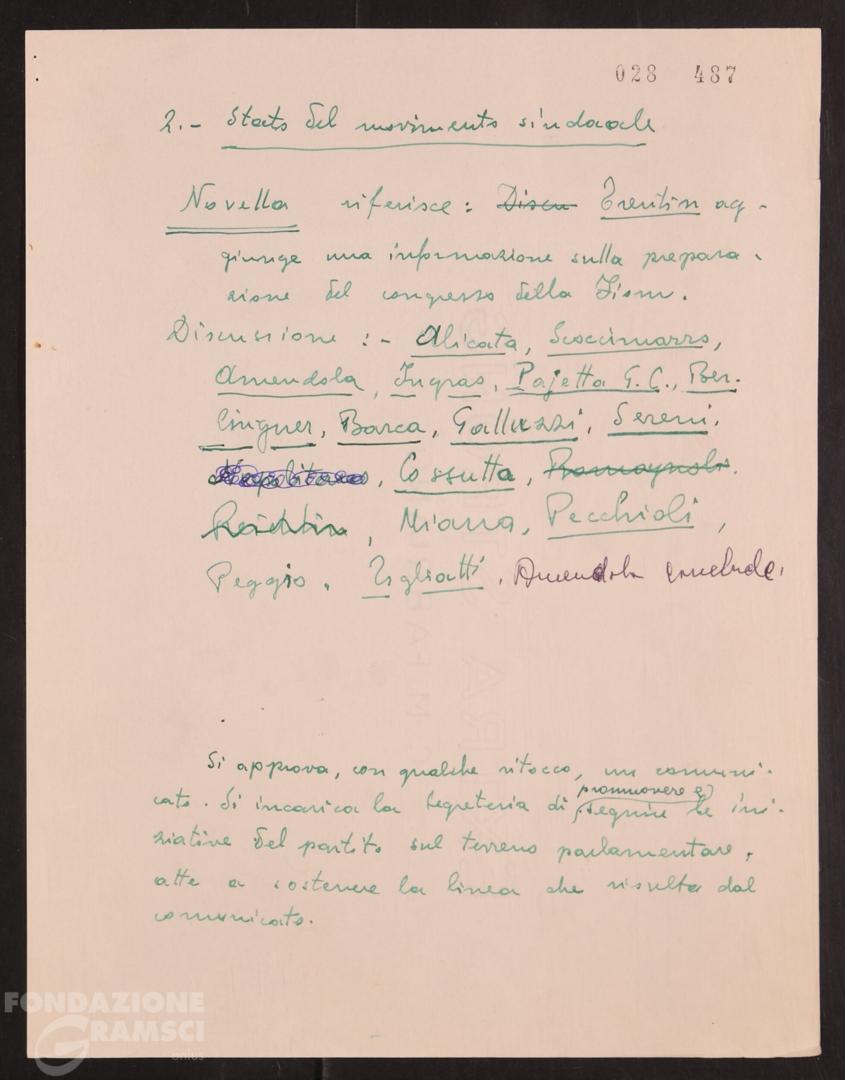 028 487
2.- Stato del movimento sindacale
Novella riferisce: Discu Trentin ag-
giunge una informazione sulla prepara-
zione del congresso della Fiom.
Discussione :- Alicata, Scoccimarro,
Amendola, Ingrao, Pajetta G.C., Ber-
linguer, Barca, Galluzzi, Sereni,
Napolitano, Cossutta, Romagnoli,
Reichlin, Miana, Pecchioli,
Peggio, Togliatti, Amendola conclude.
Si approva, con qualche ritocco, un comuni-
cato. Si incarica la Segreteria di promuovere e seguire le ini-
ziative del partito sul terreno parlamentare,
atte a sostenere la linea che risulta dal
comunicato.
FONDAZIONE
GRAMSCI
onlus